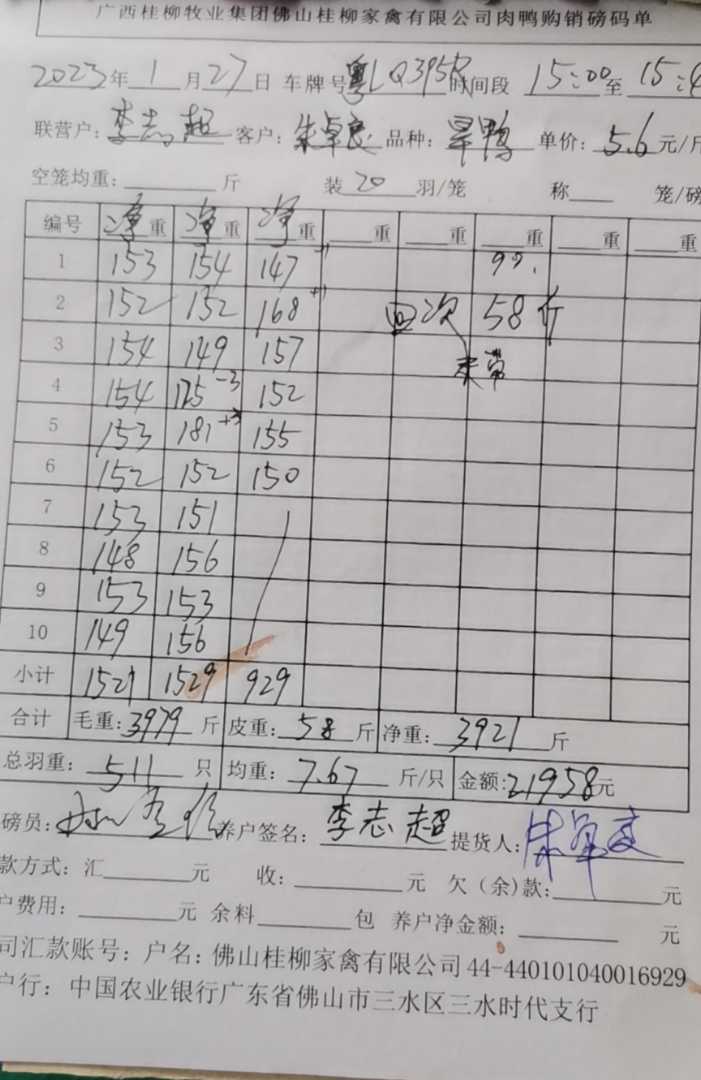 广西桂柳牧业集团佛山桂柳家禽有限公司肉鸭购销磅码单
2023年 1 月 27 日 车牌号 粤LQ395R 时间段 15:00 至 15:4
联营户: 李志超 客户: 朱卓良 品种: 旱鸭 单价: 5.6 元/斤
空笼均重: 斤 装 20 羽/笼 称 笼/磅
编号 净重 净重 净重 重 重 重 重 重
1 153 154 147 +1 99.
2 152 152 168 +1 四次 58斤
3 154 149 157 未带
4 154 125 -3 152
5 153 181 +3 155
6 152 152 150
7 153 151
8 148 156
9 153 153
10 149 156
小计 1521 1529 929
合计 毛重: 3979 斤 皮重: 58 斤 净重: 3921 斤
总羽重: 511 只 均重: 7.67 斤/只 金额: 21958元
磅员: 养户签名: 李志超 提货人:
款方式: 汇 元 收: 元 欠(余)款: 元
户费用: 元 余料 包 养户净金额: 元
司汇款账号: 户名: 佛山桂柳家禽有限公司 44-440101040016929
户行: 中国农业银行广东省佛山市三水区三水时代支行